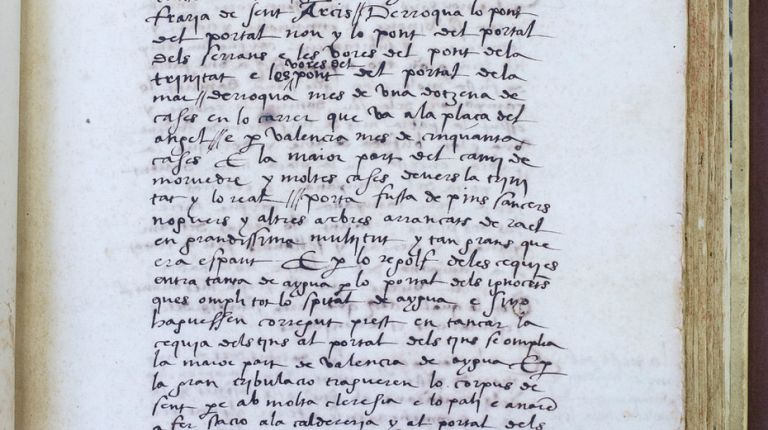 fraria de sent Arcis // Derroqua lo pont
del portal nou y lo pont del portal
dels serrans e les vores del pont dela
vores del
trinitat e les pont del portal dela
mar // derroqua mes de una dotzena de
cases en lo carrer que va ala plaça del
angel // e per valencia mes de cinquanta
cases E la maior part del cami de
morvedre y moltes cases devers la trini
tat y lo real /// porta fusta de pins sancers
noguers y altres arbres arrancats de rael
en grandissima multitut y tan grans que
era espant E per lo regolf deles cequies
entra tanta de aygua per lo portal dels ignocets
ques ompli tot lo spital de aygua e si no
haguessen corregut prest en tancar la
cequia dels tins al portal dels tins se omplia
la maior part de valencia de aygua E per
la gran tribulacio tragueren lo corpus de
sent pe ab molta cleresia e lo pali e anaren
a fer stacio ala caldereria y al portal dels